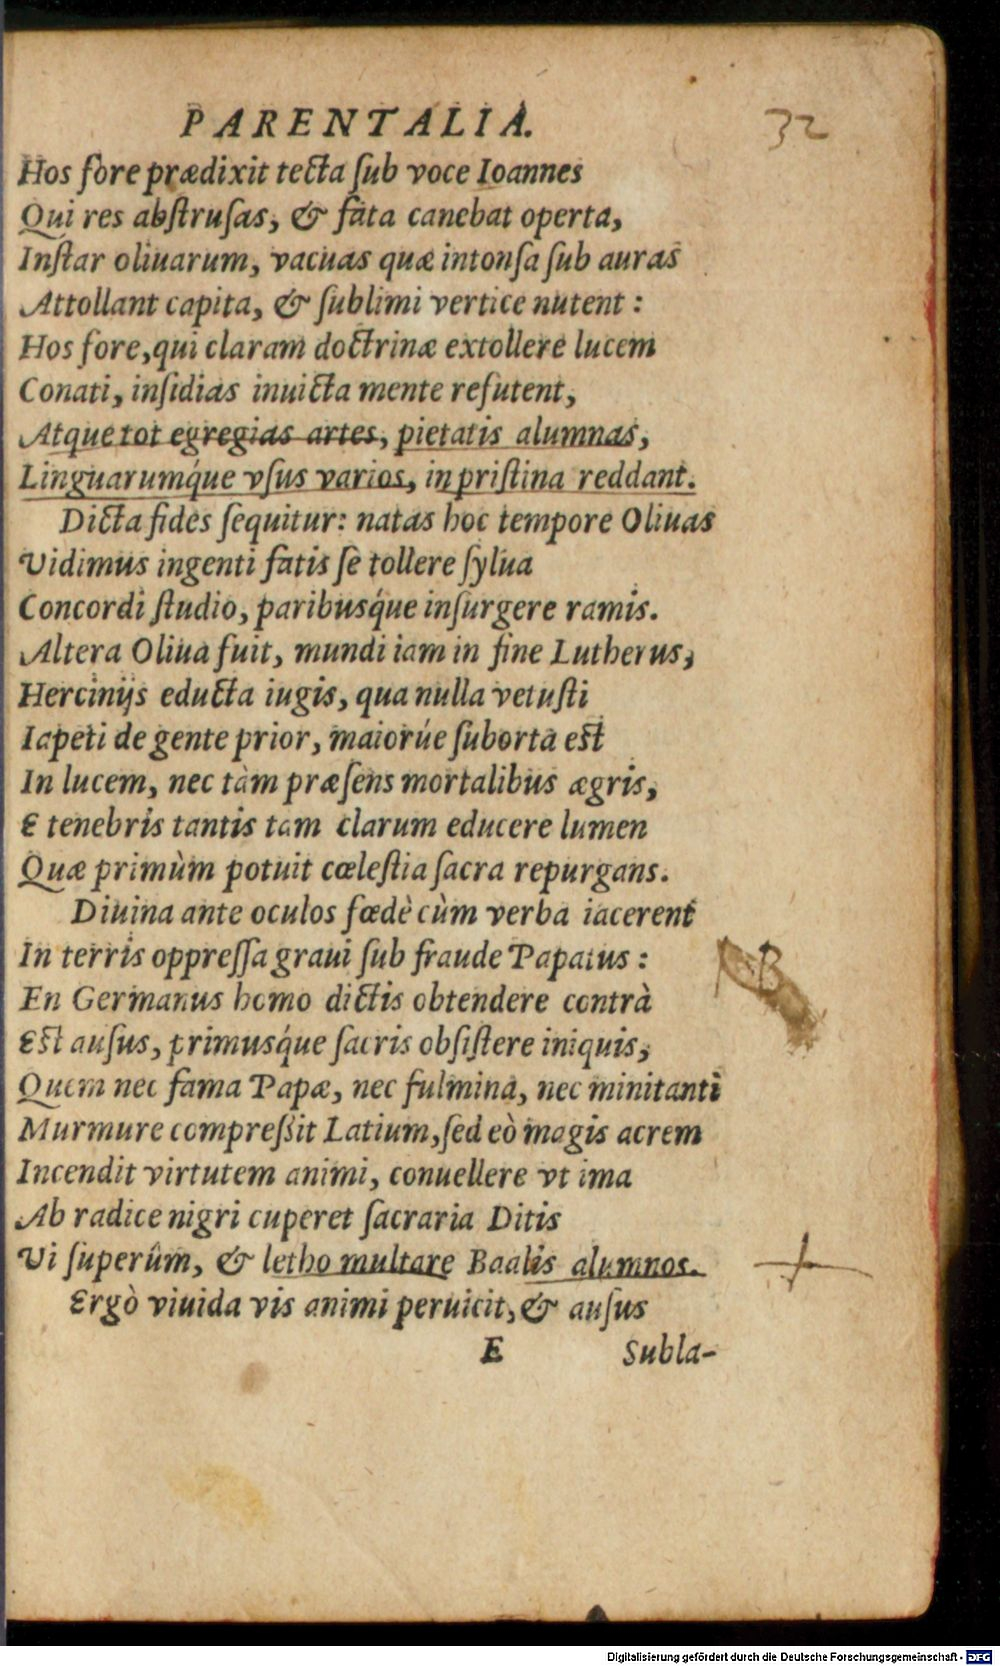 PARENTALIA.
32
Hos fore prædixit tecta ſub voce Ioannes
Qui res abſtruſas, & fata canebat operta,
Inſtar oliuarum, vacuas quæ intonſa ſub auras
Attollant capita, & ſublimi vertice nutent:
Hos fore, qui claram doctrinæ extollere lucem
Conati, inſidias inuicta mente refutent,
Atque tot egregias artes, pietatis alumnas,
Linguarumq́ue vſus varios, in priſtina reddant.
Dicta fides ſequitur: natas hoc tempore Oliuas
Vidimus ingenti fatis ſe tollere ſylua
Concordi ſtudio, paribusq́ue inſurgere ramis.
Altera Oliua fuit, mundi iam in fine Lutherus,
Hercinijs educta iugis, qua nulla vetuſti
Iapeti de gente prior, maiorúe ſuborta eſt
In lucem, nec tàm præſens mortalibus ægris,
E tenebris tantis tam clarum educere lumen
Quæ primùm potuit cœleſtia ſacra repurgans.
Diuina ante oculos fœdè cùm verba iacerent
In terris oppreſſa graui ſub fraude Papatus:
B
En Germanus homo dictis obtendere contrà
Eſt auſus, primusq́ue ſacris obſiſtere iniquis,
Quem nec fama Papæ, nec fulmina, nec minitanti
Murmure compreßit Latium, ſed eò magis acrem
Incendit virtutem animi, conuellere vt ima
Ab radice nigri cuperet ſacraria Ditis
Vi ſuperûm, & letho multare Baalis alumnos.
Ergò viuida vis animi peruicit, & auſus
E Subla-
Digitalisierung gefördert durch die Deutsche Forschungsgemeinschaft - DFG